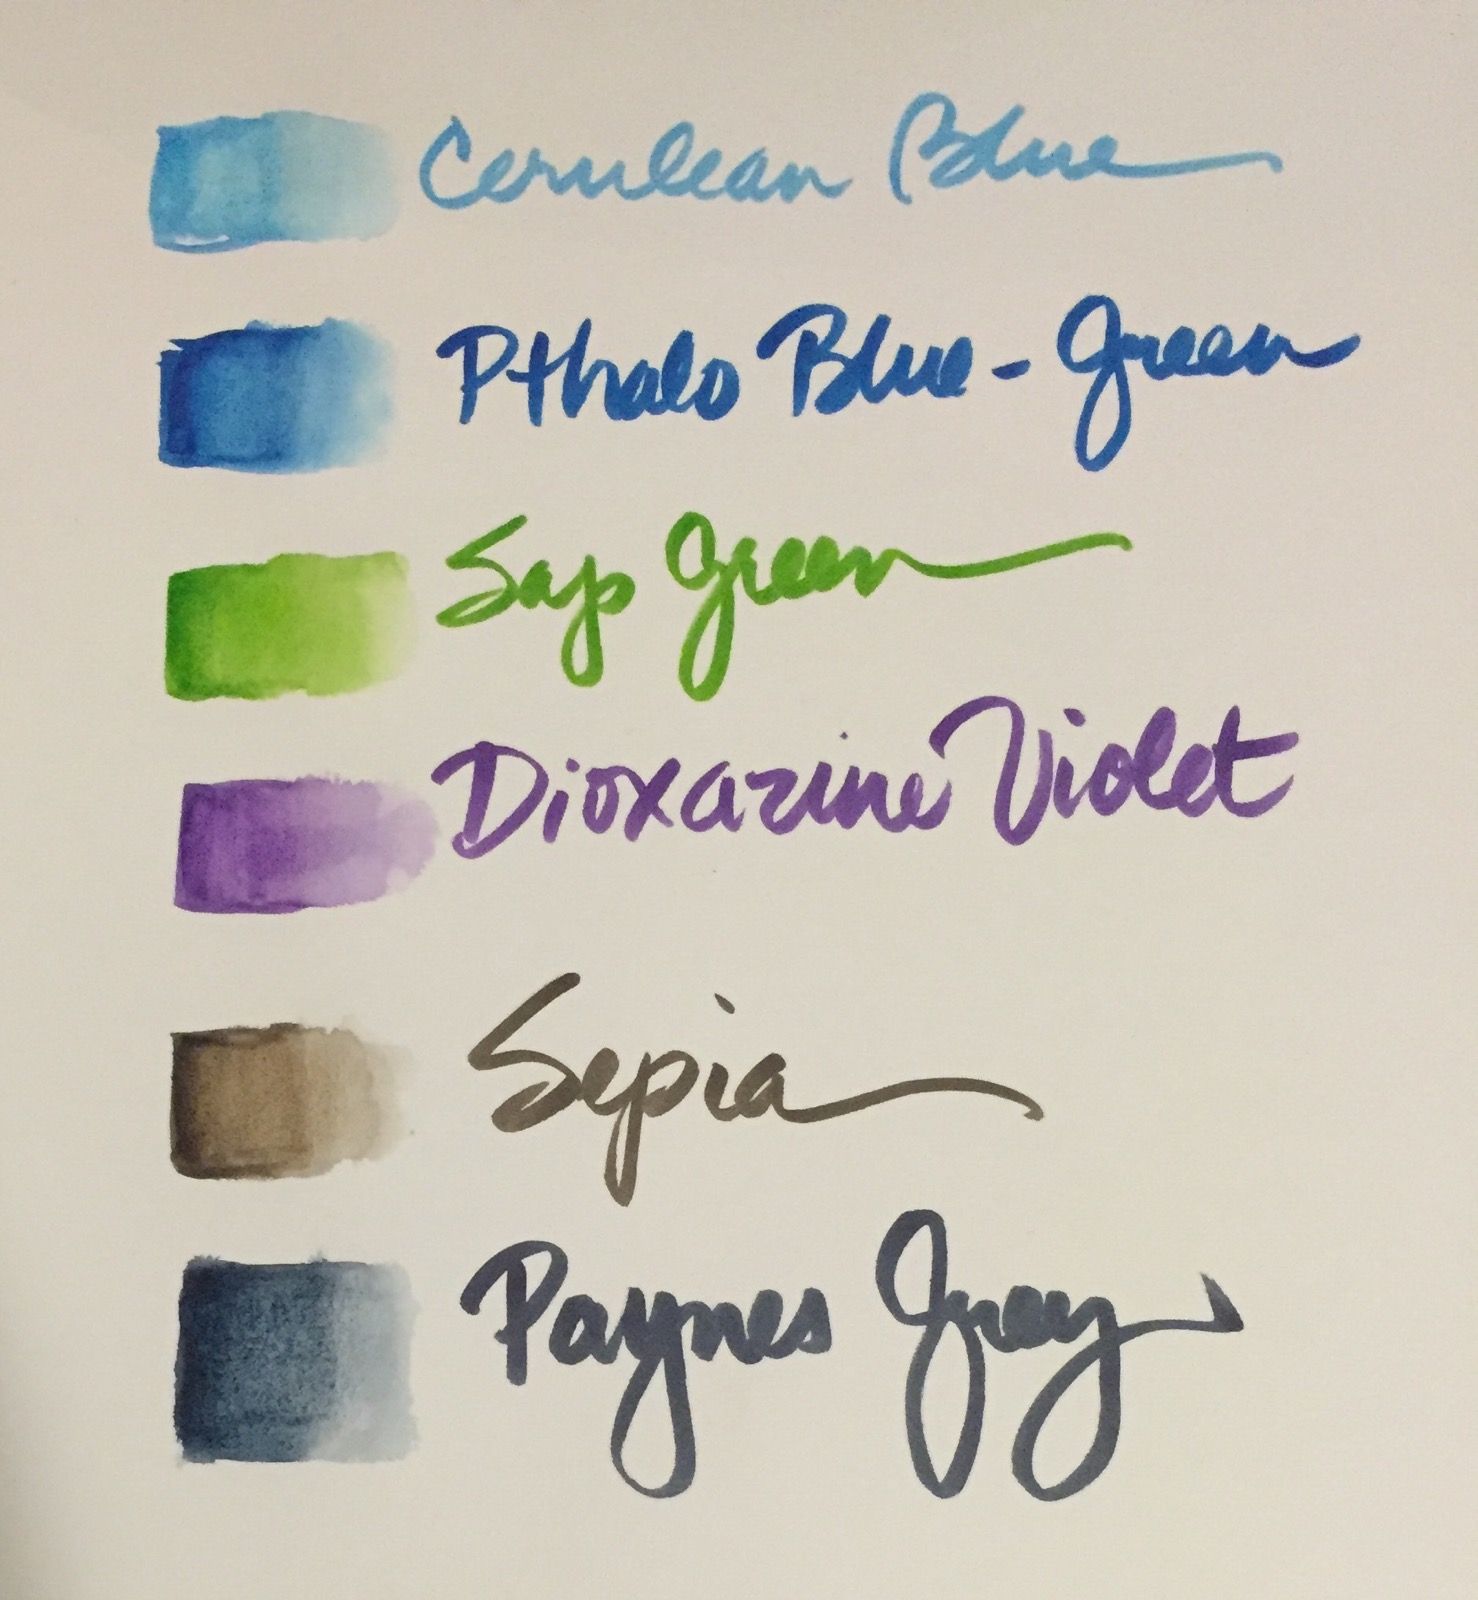 Cerulean Blue
Pthalo Blue-Green
Sap Green
Dioxazine Violet
Sepia
Paynes Gray